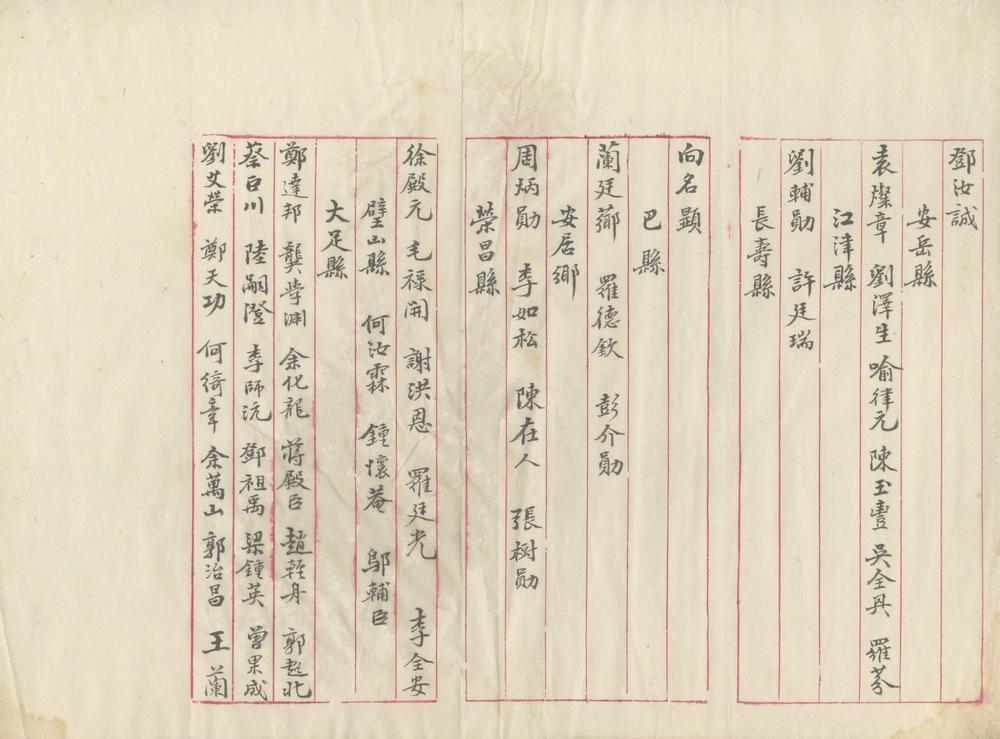 鄧汝誠
安岳縣
袁燦章 劉澤生 喻律元 陳玉豊 吳全兵 羅芬
江津縣
劉輔勛 許廷瑞
長壽縣
向名顯
巴縣
蘭廷薌 羅德欽 彭介勛
安居鄉
周炳勛 李如松 陳在人 張樹勛
榮昌縣
徐殿元 毛祿開 謝洪恩 羅廷光 李全安
璧山縣 何汝霖 鍾懷菴 鄔輔臣
大足縣
鄭達邦 龔學渊 余化龍 蔣殿臣 趙輕舟 郭超北
蔡巨川 陸嗣澄 李師沆 鄧祖禹 梁鍾英 曾果成
劉艾榮 鄭天功 何綺章 余萬山 郭治昌 王蘭